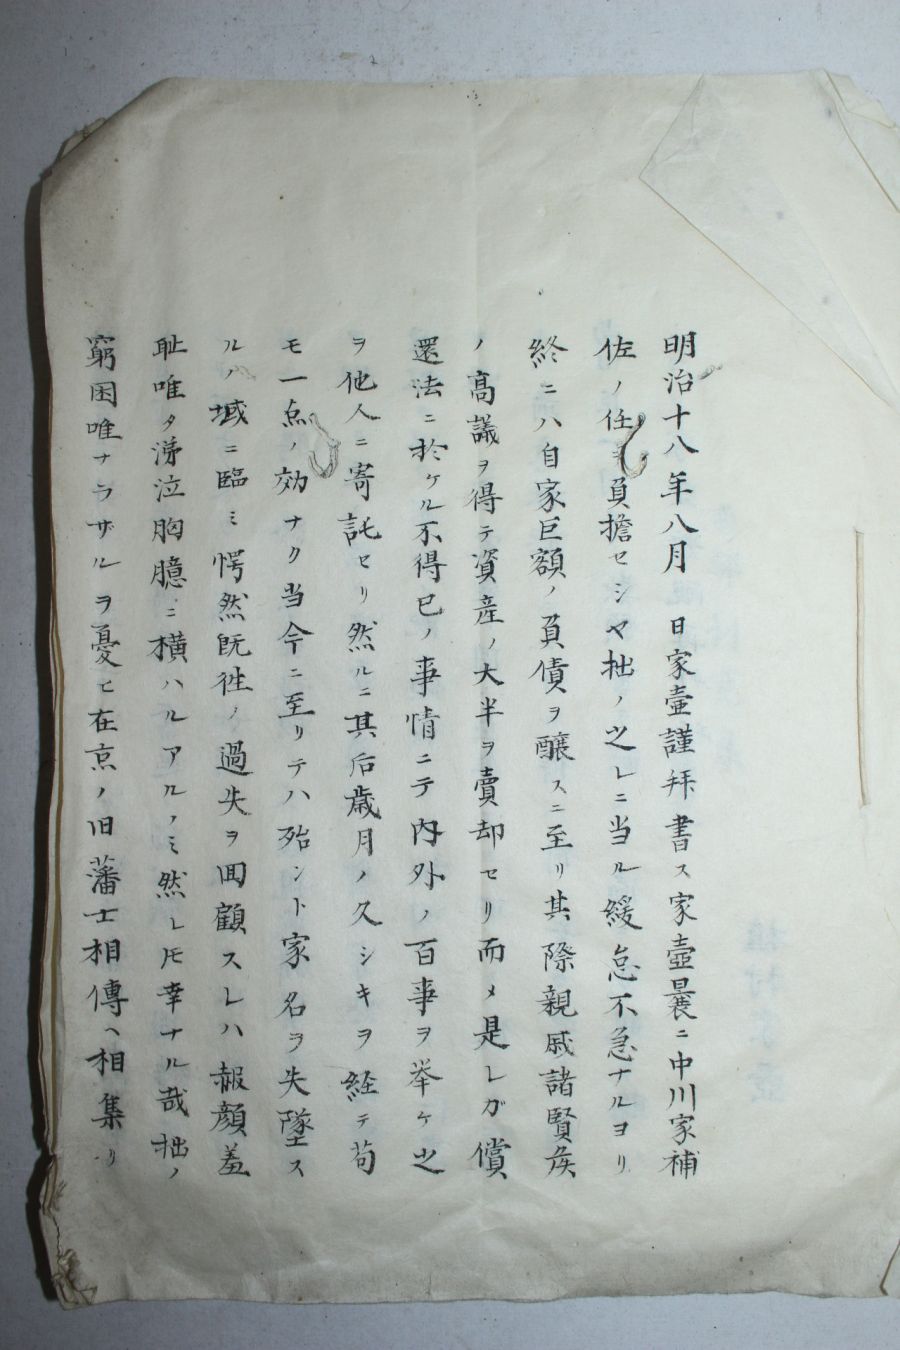 明治十八年八月　日家壷謹拜書ス家壷曩ニ中川家補
佐ノ任ヲ負擔セシヤ拙ノ之レニ当ル緩怠不急ナルヨリ
終ニハ自家巨額ノ負債ヲ醸スニ至リ其際親戚諸賢矦
ノ高議ヲ得テ資産ノ大半ヲ賣却セリ而メ是レガ償
還法ニ於ケル不得已ノ事情ニテ内外ノ百事ヲ挙ケ之
ヲ他人ニ寄託セリ然ルニ其后歳月ノ久シキヲ経テ苟
モ一点ノ効ナク当今ニ至リテハ殆ント家名ヲ失墜ス
ルノ域ニ臨ミ愕然既徃ノ過失ヲ回顧スレハ赧顔羞
耻唯タ涕泣胸臆ニ横ハルアルノミ然レ𪜈幸ナル哉拙ノ
窮困唯ナラザルヲ憂ヒ在京ノ旧藩士相傳ヘ相集リ